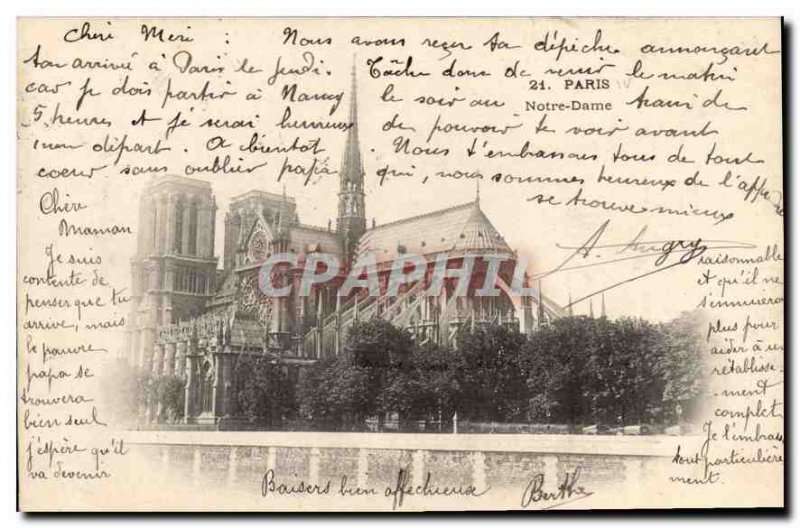 Chéri Meri : Nous avons reçu ta dépêche annonçant
ton arrivée à Paris le jeudi. Tâche donc de venir le matin
car je dois partir à Nancy le soir au train de
5 heures et je serai heureux de pouvoir te voir avant
mon départ. A bientôt Nous t'embrassons tous de tout
coeur sans oublier papa qui, nous sommes heureux de l'apprendre
se trouve mieux
A. Augry
21. PARIS
Notre-Dame
Chère
Maman
Je suis
contente de
penser que tu
arrive, mais
le pauvre
papa se
trouvera
bien seul
j'espère qu'il
va devenir
raisonnable
et qu'il ne
s'ennuiera
plus pour
aider à un
rétablisse-
ment
complet
Je l'embrasse
tout particulière
ment.
Baisers bien affectueux
Berthe
CPARPHIL